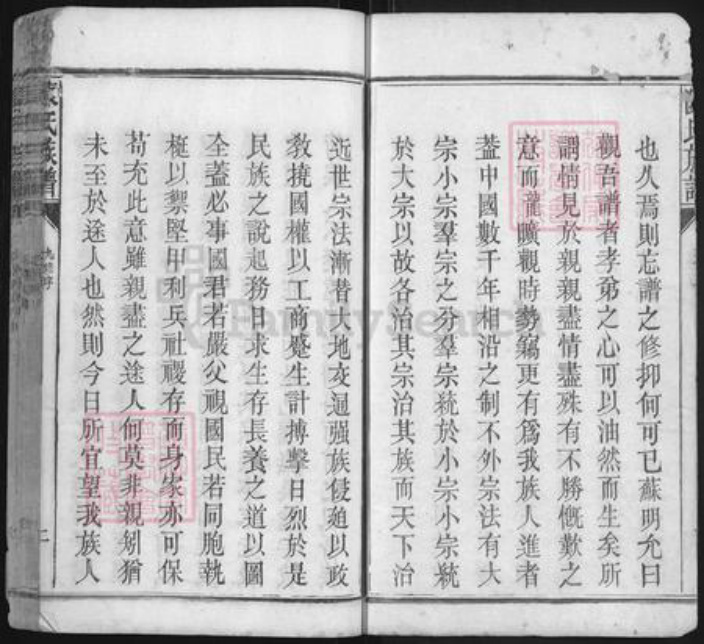 也久焉則忘譜之修抑何可已蘇明允曰
觀吾譜者孝弟之心可以油然而生矣所
謂情見於親親盡情盡殊有不勝慨歎之
意而瀧曠觀時勢竊更有爲我族人進者
葢中國數千年相沿之制不外宗法有大
宗小宗羣宗之分羣宗統於小宗小宗統
於大宗以故各治其宗治其族而天下治
近世宗法漸替大地交通强族侵廹以政
敎撓國權以工商蹙生計搏擊日烈於是
民族之說起務日求生存長養之道以圖
全葢必事國君若嚴父視國民若同胞執
梃以禦堅甲利兵社禝存而身家亦可保
苟充此意雖親盡之途人何莫非親矧猶
未至於途人也然則今日所宜望我族人
氏族譜
二
FamilySearch